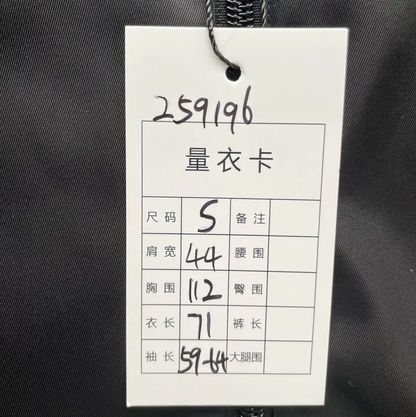 259196
量衣卡
尺码 S 备注
肩宽 44 腰围
胸围 112 臀围
衣长 71 裤长
袖长 59-64 大腿围